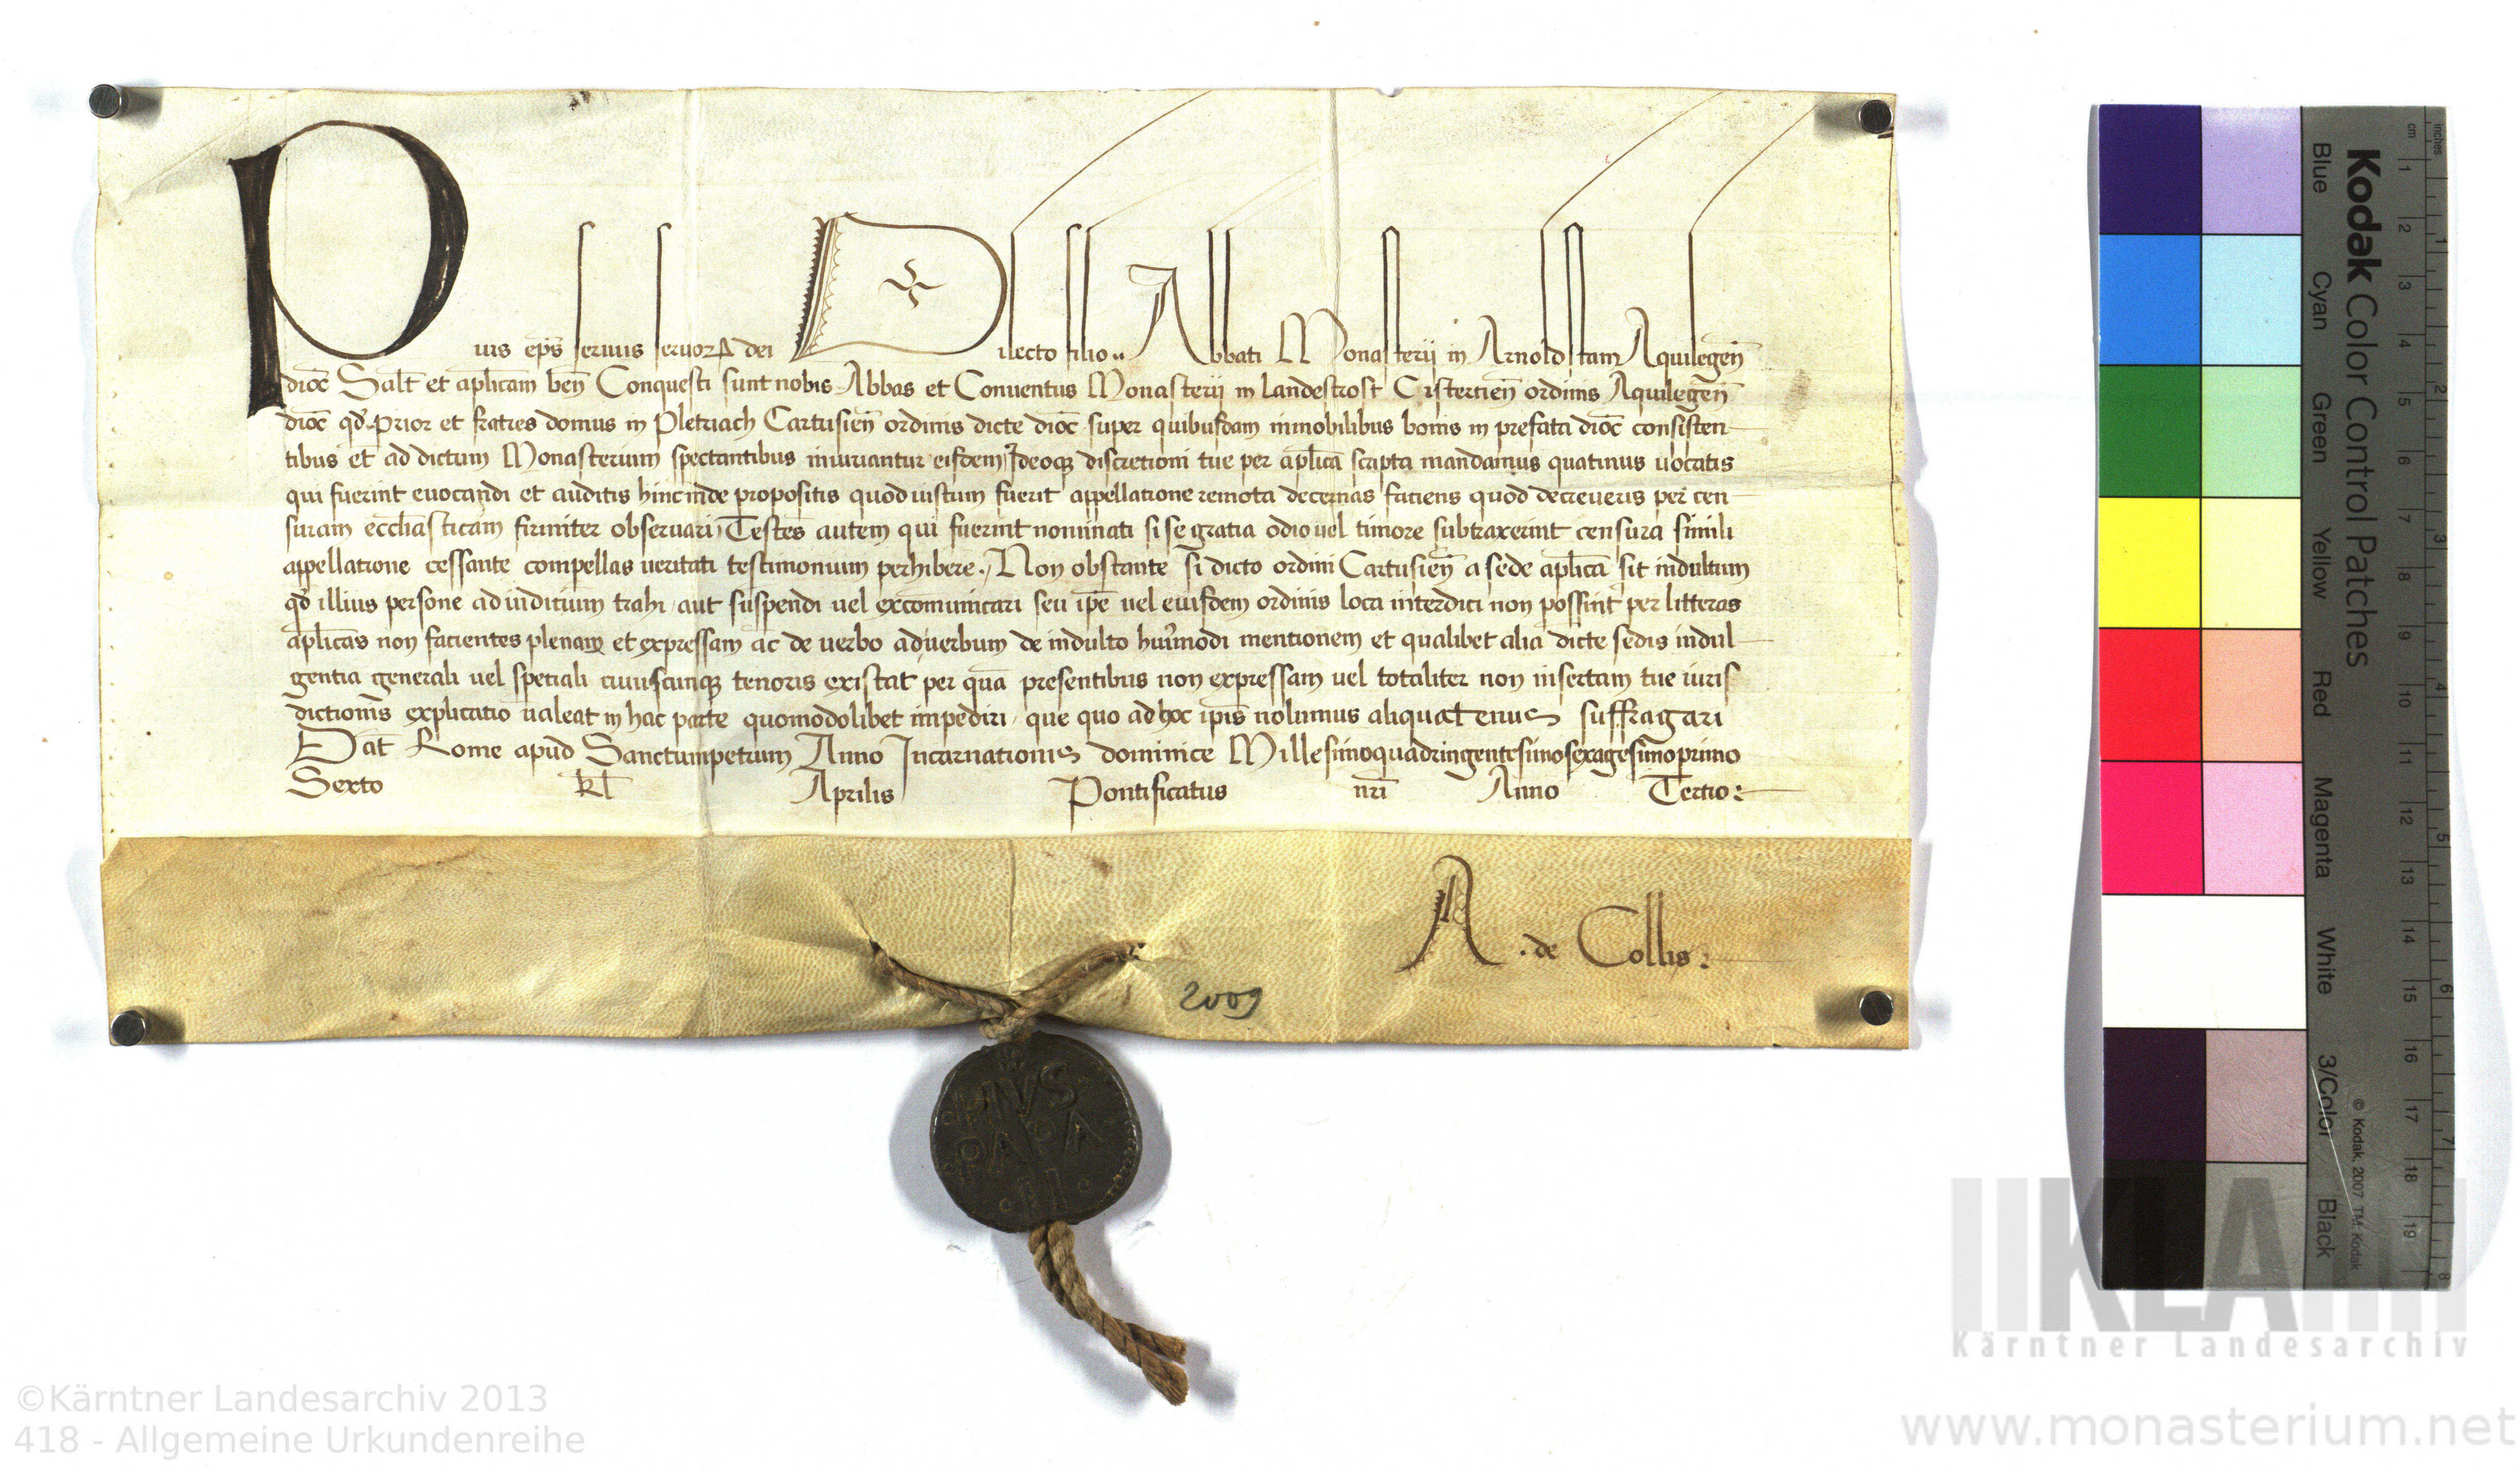 Pius ep̄s seruus seruoꝝ dei Dilecto filio .. Abbati Monasterij in Arnoldstam Aquilegen̄
dioc̄ Salt̄ et aplicam ben̄ Conquesti sunt nobis Abbas et Conuentus Monasterij in Landestrost Cistertien̄ ordinis Aquilegen̄
dioc̄ qd̄ Prior et fratres domus in Pletriach Cartusien̄ ordinis dicte dioc̄ super quibusdam inmobilibus bonis in prefata dioc̄ consisten
tibus et ad dictum Monasterium spectantibus iniuriantur eisdem Ideoqꝫ discretioni tue per aplica scripta mandamus quatinus uocatis
qui fuerint euocandi et auditis hincinde propositis quod iustum fuerit appellatione remota decernas faciens quod decreueris per cen
suram eccliasticam firmiter obseruari Testes autem qui fuerint nominati si se gratia odio uel timore subtraxerint censura simili
appellatione cessante compellas ueritati testimonium perhibere. Non obstante si dicto ordini Cartusien̄ a sede aplica sit indultum
qd̄ illius persone ad iuditium trahi aut suspendi uel excomunicari seu ip̄e uel eiusdem ordinis loca interdici non possint per litteras
aplicas non facientes plenam et expressam ac de uerbo ad uerbum de indulto hui9modi mentionem et qualibet alia dicte sedis indul
gentia generali uel speciali cuiuscunqꝫ tenoris existat per quā presentibus non expressam uel totaliter non insertam tue iuris
dictionis explicatio ualeat in hac parte quomodolibet impediri que quo ad hoc ip̄is nolumus aliquatenus suffragari
Dat̄ Rome apud Sanctumpetrum Anno Incarnationis dominice Millesimoquadringentesimosexagesimoprimo
Sexto kl̄ Aprilis Pontificatus nr̄i Anno Tertio:
A. de Collis:
2009
PIVS
PAPA
II
Kodak Color Control Patches
Blue Cyan Green Yellow Red Magenta White 3/Color Black
© Kodak, 2007 TM: Kodak
cm 1 2 3 4 5 6 7 8 9 10 11 12 13 14 15 16 17 18 19
inches 1 2 3 4 5 6 7 8
KLA
Kärntner Landesarchiv
©Kärntner Landesarchiv 2013
418 - Allgemeine Urkundenreihe
www.monasterium.net